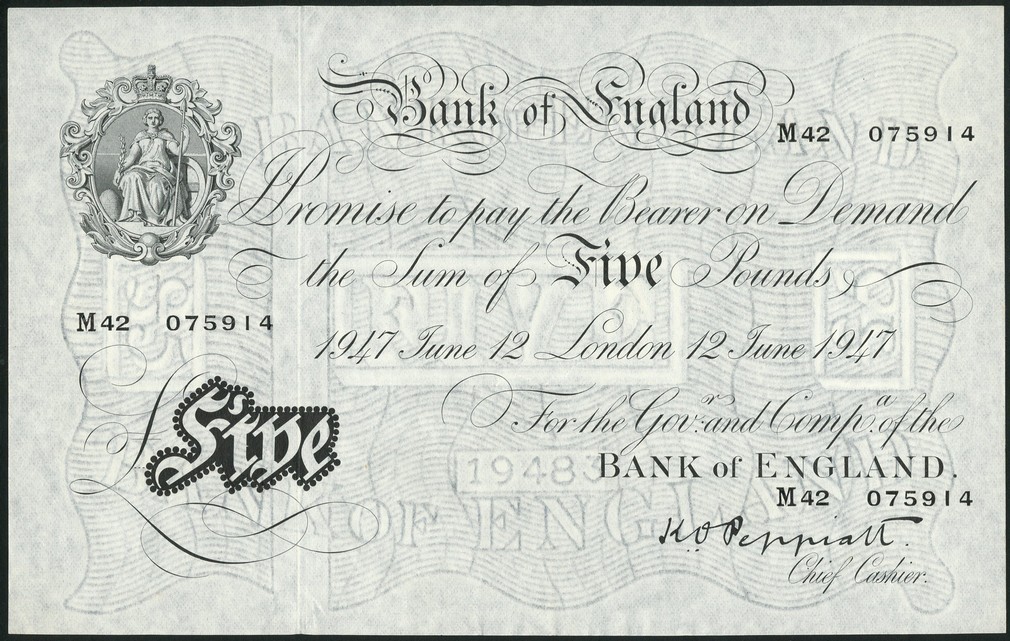 Bank of England
M42 075914
I Promise to pay the Bearer on Demand
the Sum of Five Pounds
M42 075914
1947 June 12 London 12 June 1947
£Five
For the Gov.r and Comp.a of the
BANK of ENGLAND.
M42 075914
K O Peppiatt.
Chief Cashier.
FIVE
19483
OF ENGLAND